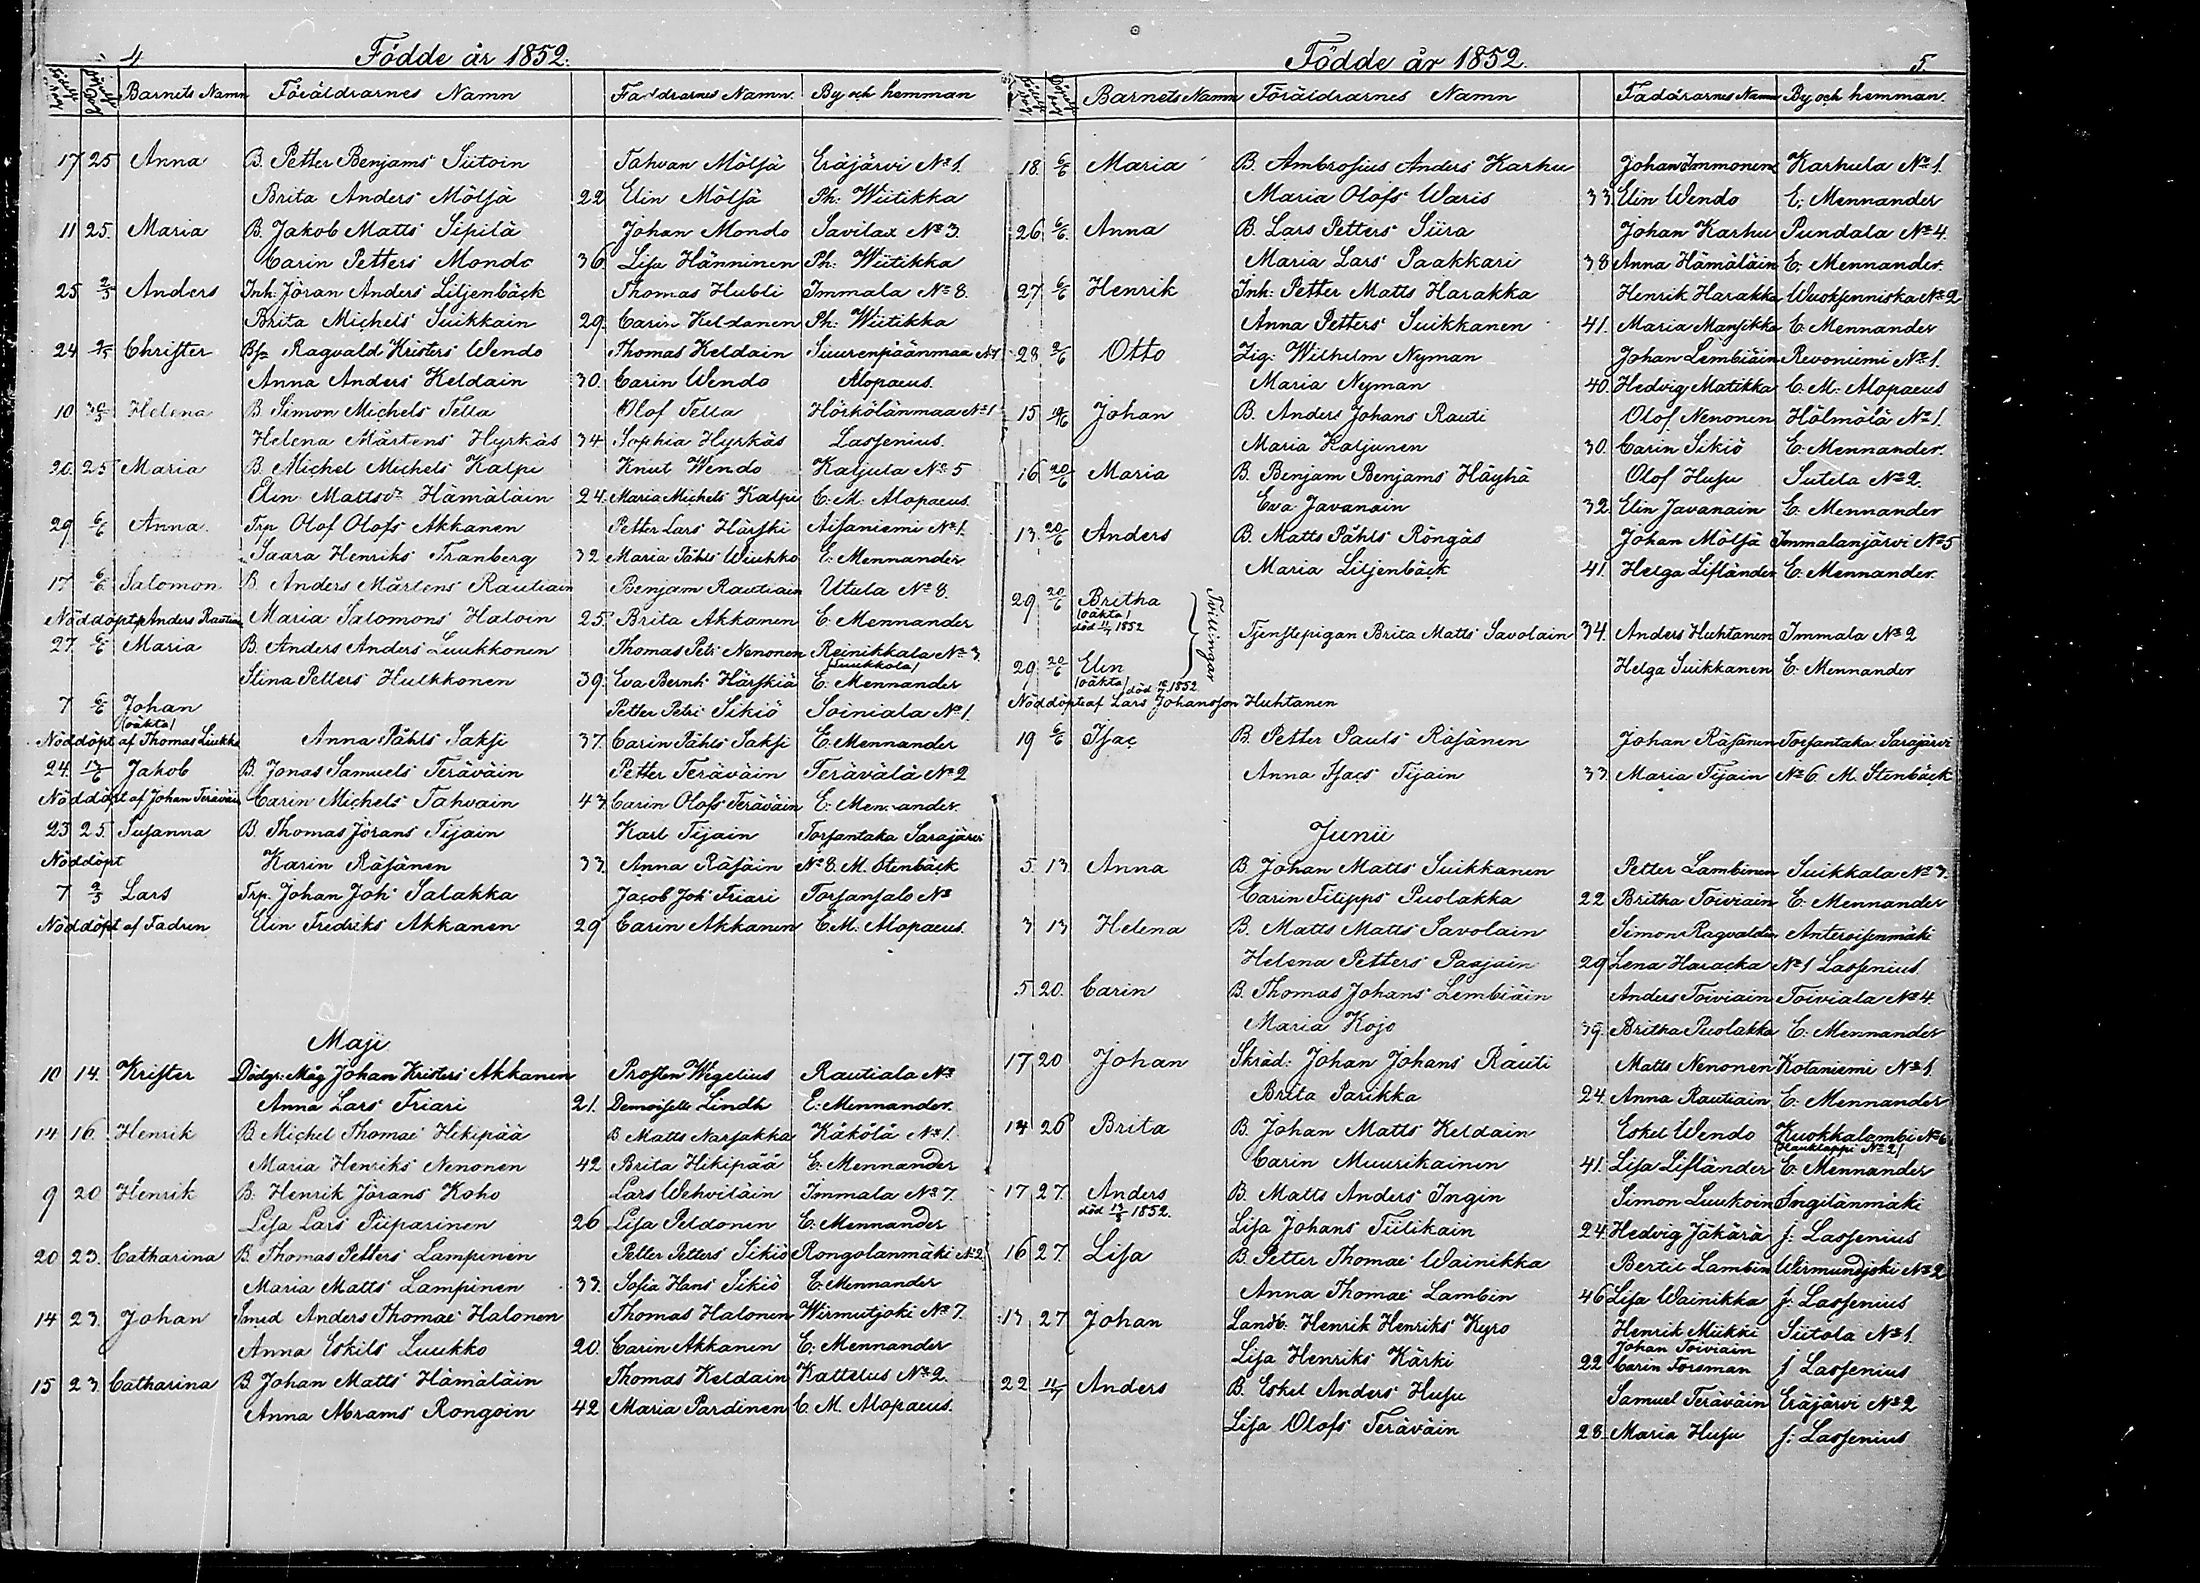 4 Födde år 1852.
Barnets Namn Föräldrarnes Namn Faddrarnes Namn. By och hemman
17 25 Anna B. Petter Benjams Siitoin Tahvan Mölsä Eräjärvi No 1.
Brita Anders Mölsä 22 Elin Mölsä Ph: Wiitikka
11 25. Maria B. Jakob Matts Sipilä Johan Mondo Savilax No 3.
Carin Petters Mondo 36 Lisa Hänninen Ph: Wiitikka
25 2/5 Anders Inh: Jöran Anders Liljenbäck Thomas Hubli Immala No 8.
Brita Michels Suikkain 29. Carin Keldanen Ph: Wiitikka
24 Christer Ragvald Kristers Wendo Thomas Keldain Suurenpäänmaa No 1
Anna Anders Keldain 30. Carin Wendo Alopaeus.
10 Helena B. Simon Michels Tella Olof Tella Hörkölänmaa No 1
Helena Mårtens Hyrkäs 34 Sophia Hyrkäs Lassenius.
20. 25 Maria B. Michel Michels Kalpi Knut Wendo Kaljula No 5
Elin Mattsdr Hämäläin 24. Maria Michels Kalpi C: M: Alopaeus.
29 6/6 Anna. Trp Olof Olofs Akkanen Petter Lars Härski Aisaniemi No 1.
Saara Henriks Tranberg 32 Maria Påhls Wiukko E: Mennander
17 6/6 Salomon B Anders Mårtens Rautiain Benjam Rautiain Utula No 8.
Nöddöpt af Anders Rautiain Maria Salomons Haloin 25 Brita Akkanen E: Mennander
27 6/6 Maria B. Anders Anders Luukkonen Thomas Petr Nenonen Reinikkala No 3.
Stina Petters Hulkkonen 39. Eva Bernh. Härskiä E: Mennander
7 6/6 Johan Petter Petri Sikiö Soiniala No 1.
(oäkta)
Nöddöpt af Thomas Liukko Anna Påhls Saksi 37. Carin Påhls Saksi E: Mennander
24. 13/6 Jakob B. Jonas Samuels Teräväin Petter Teräväin Terävälä No 2
Nöddöpt af Johan Teräväin Carin Michels Tahvain 43 Carin Olofs Teräväin E: Mennander.
23 25. Susanna B. Thomas Jörans Tijain Karl Tijain Torsantaka Sarajärvi
Nöddöpt Karin Räsänen 33. Anna Räsäin No 8. M. Stenbäck
7 2/5 Lars Trp. Johan Joh. Salakka Jacob Joh Friari Torsansalo No
Nöddöpt af Fadren Elin Fredriks Akkanen 29 Carin Akkanen C.M: Alopaeus.
Maji
10 14. Krister Dödgr: Måg Johan Kristers Akkanen Prosten Wegelius Rautiala No
Anna Lars Friari 21. Demoiselle Lindh E: Mennander.
14 16 Henrik B Michel Thomae Hikipää B Matts Narsakka Käkölä No 1.
Maria Henriks Nenonen 42 Brita Hikipää E: Mennander
9 20 Henrik B. Henrik Jörans Koho Lars Wehviläin Immala No 7.
Lisa Lars Piiparinen 26 Lisa Peldonen E: Mennander
20 23. Catharina B. Thomas Petters Lampinen Petter Petters Sikiö Rongolanmäki No 2
Maria Matts Lampinen 33. Sofia Hans Sikiö E: Mennander
14 23. Johan Smed Anders Thomae Halonen Thomas Halonen Wirmutjoki No 7.
Anna Eskils Luukko 20. Carin Akkanen E: Mennander
15 23. Catharina B. Johan Matts Hämäläin Thomas Keldain Kattelus No 2.
Anna Abrams Rongoin 42 Maria Pardinen C. M. Alopaeus.
Födde år 1852. 5.
Barnets Namn Föräldrarnes Namn Fadderarnes Namn By och hemman.
18. 6/6 Maria B. Ambrosius Anders Karhu Johan Immonen Karhula No 1.
Maria Olofs Waris 33. Elin Wendo E: Mennander
26 6/6. Anna B. Lars Petters Siira Johan Karhu Pundala No 4.
Maria Lars Paakkari 38 Anna Hämäläin E: Mennander.
27 6/6 Henrik Inh: Petter Matts Harakka Henrik Harakka Wuoksenniska No 2
Anna Petters Suikkanen 41. Maria Mansikka E: Mennander
28 Otto Zig: Wilhelm Nyman Johan Lembiäin Revoniemi No 1.
Maria Nyman 40. Hedvig Matikka C: M: Alopaeus
15 Johan B. Anders Johans Rauti Olof Nenonen Hälmälä No 1.
Maria Kaljunen 30. Carin Sikiö E: Mennander.
16 20/6 Maria B. Benjam Benjams Häyhä Olof Husu Sutela No 2.
Eva Javanain 32 Elin Javanain E: Mennander
13. 20/6 Anders B. Matts Påhls Röngäs Johan Mölsä Immalanjärvi No 5
Maria Liljenbäck 41. Helga Lifländer E: Mennander.
29 20/6 Britha Tvillingar
(oäkta)
död 11/7 1852
Tjenstepigan Brita Matts Savolain 34. Anders Huhtanen Immala No 2
29 20/6 Elin Helga Suikkanen E: Mennander
(oäkta) död 1852
Nöddöpte af Lars Johansson Huhtanen
19 6/6 Isac B. Petter Pauls Räsänen Johan Räsänen Torsantaka Sarajärvi
Anna Isacs Tijain 33 Maria Tijain No 6. M. Stenbäck
Junii
5 13 Anna B. Johan Matts Suikkanen Petter Lambinen Suikkala No 3.
Carin Filipps Puolakka 22 Britha Toiviain E: Mennander
3 13 Helena B. Matts Matts Savolain Simon Ragvaldin Anteroisenmäki
Helena Petters Paajain 29 Lena Haracka No 1 Lassenius
5 20. Carin B. Thomas Johans Lembiäin Anders Toiviain Toiviala No 4.
Maria Kojo 39. Britha Puolakka E: Mennander
17 20 Johan Skräd: Johan Johans Rauti Matts Nenonen Kotaniemi No 1.
Brita Parikka 24. Anna Rautiain E: Mennander
14 26 Brita B. Johan Matts Keldain Eskel Wendo Kuokkalambi No 6
(Hauklappi No 2)
Carin Muurikainen 41. Lisa Lifländer E: Mennander
17 27. Anders B. Matts Anders Ingin Simon Luukoin Ingilänmäki
död 13/8 1852. Lisa Johans Tiilikain 24 Hedvig Jäkärä J: Lassenius
16 27. Lisa B. Petter Thomae Wainikka Bertil Lambin Wirmundjoki No 2
Anna Thomae Lambin 46 Lisa Wainikka J: Lassenius
13 27 Johan Landb: Henrik Henriks Kyro Henrik Miikki Siitola No 1.
Johan Toiviain
Lisa Henriks Kärki 22 Carin Forsman J Lassenius
22 11/7 Anders B. Eskel Anders Husu Samuel Teräväin Eräjärvi No 2
Lisa Olofs Teräväin 28. Maria Husu J: Lassenius